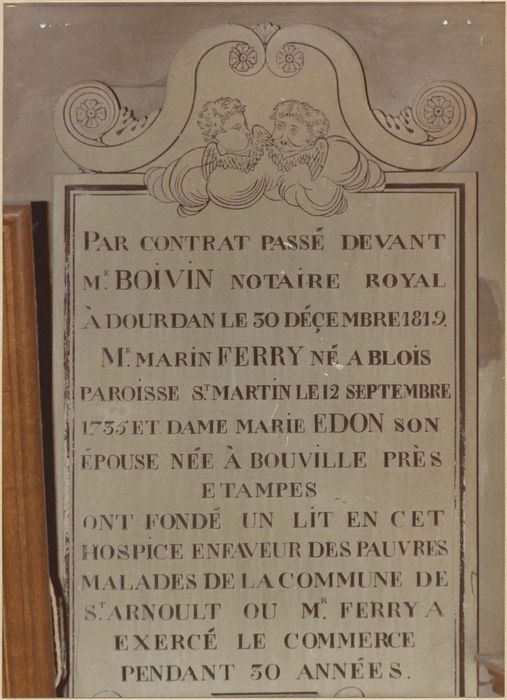 PAR CONTRAT PASSÉ DEVANT
M.E BOIVIN NOTAIRE ROYAL
À DOURDAN LE 30 DÉÇEMBRE 1819.
M.R MARIN FERRY NÉ A BLOIS
PAROISSE S.T MARTIN LE 12 SEPTEMBRE
1735 ET DAME MARIE EDON SON
ÉPOUSE NÉE À BOUVILLE PRÈS
ETAMPES
ONT FONDÉ UN LIT EN CET
HOSPICE EN FAVEUR DES PAUVRES
MALADES DE LA COMMUNE DE
S.T ARNOULT OU M.R FERRY A
EXERCÉ LE COMMERCE
PENDANT 30 ANNÉES.